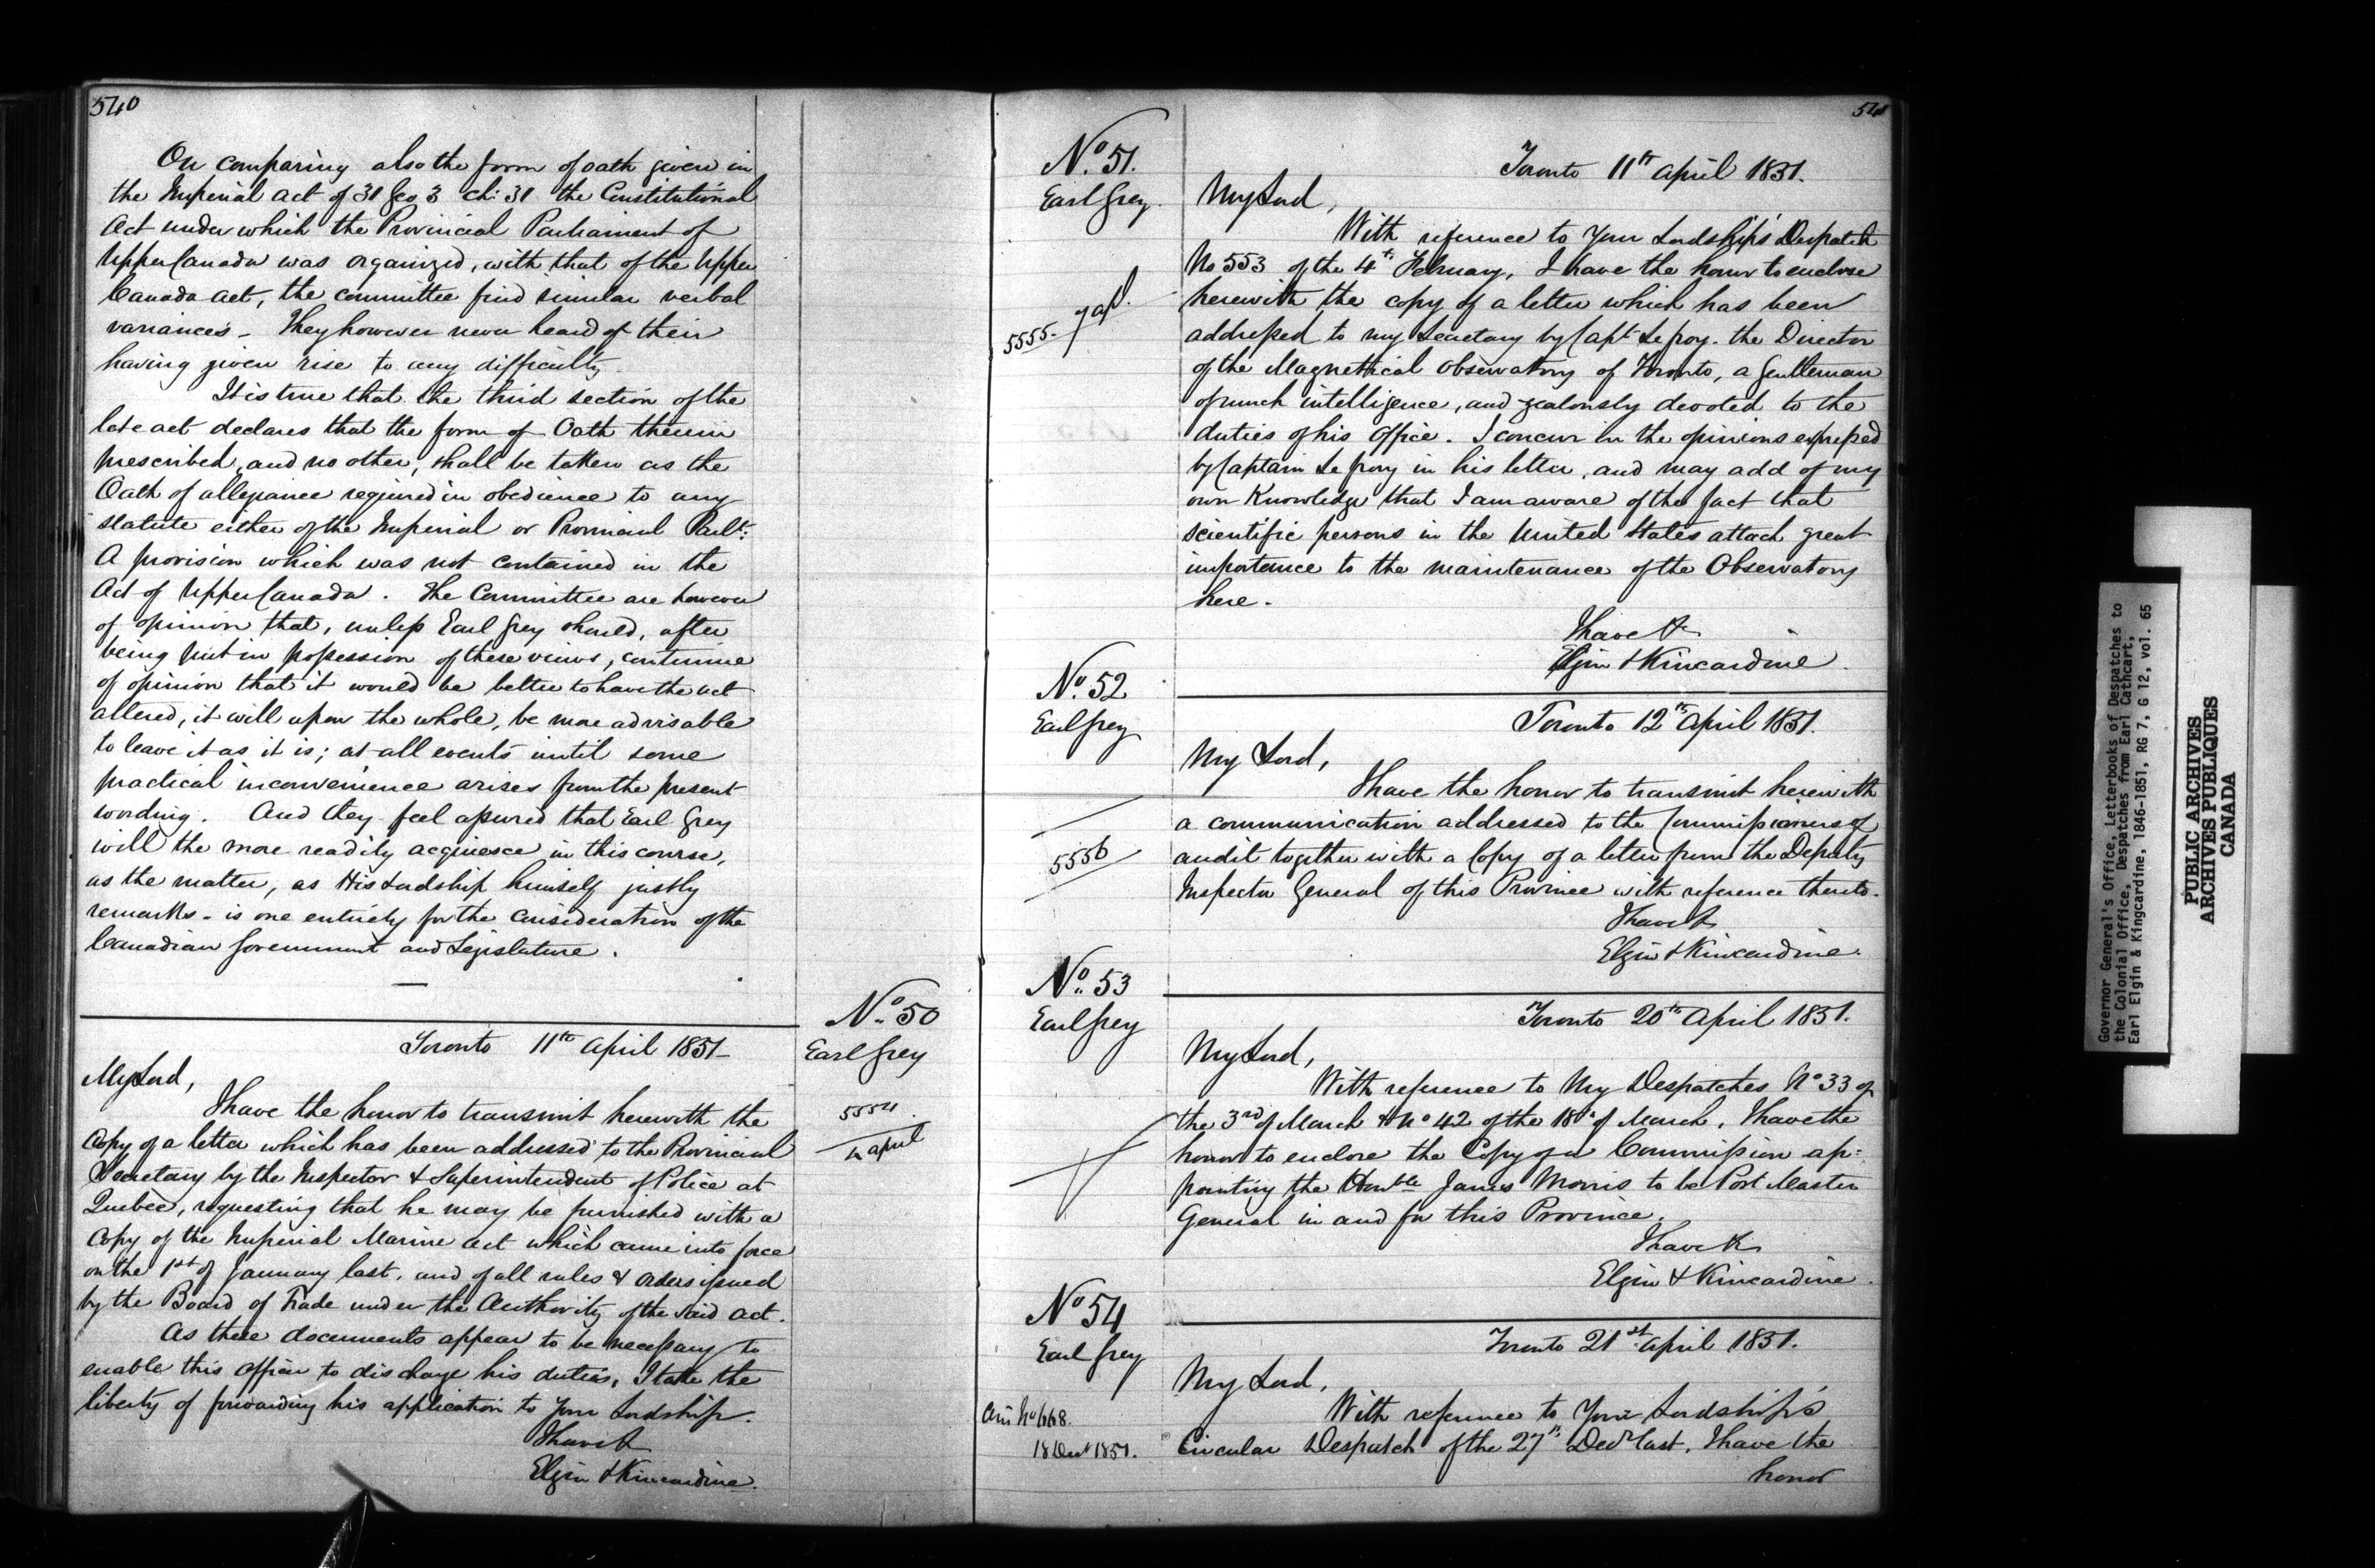 540
On comparing also the form of oath given in
the Imperial act of 31 Geo 3 ch: 31 the Constitutional
Act under which the Provincial Parliament of
Upper Canada was organized, with that of the Upper
Canada act, the committee find similar verbal
variances - They however never heard of their
having given rise to any difficulty
It is true that the third section of the
late act declares that the form of Oath therein
prescribed, and no other, shall be taken as the
Oath of allegiance required in obedience to any
statute either of the Imperial or Provincial Parlt:
A provision which was not contained in the
Act of Upper Canada. The Committee are however
of opinion that, unless Earl Grey should, after
being put in possession of these views, continue
of opinion that it would be better to have the act
altered, it will upon the whole, be more advisable
to leave it as it is; at all events until some
practical inconvenience arises from the present
wording. And they feel assured that Earl Grey
will the more readily acquiesce in this course,
as the matter, as His Lordship himself justly
remarks - is one entirely for the consideration of the
Canadian Government and Legislature.
No. 50
Earl Grey
5554
april
Toronto 11th April 1851-
My Lord,
I have the honor to transmit herewith the
Copy of a letter which has been addressed to the Provincial
Secretary by the Inspector & Superintendent of Police at
Quebec, requesting that he may be furnished with a
Copy of the Imperial Marine act which came into force
on the 1st of January last, and of all rules & orders issued
by the Board of Trade under the Authority of the said act.
As these documents appear to be necessary to
enable this officer to discharge his duties, I take the
liberty of forwarding his application to Your Lordship.
I have &
Elgin & Kincardine.
541
No. 51.
Earl Grey.
5555.
Toronto 11th April 1851.
My Lord,
With reference to Your Lordship's Despatch
No 553 of the 4th February, I have the honor to enclose
herewith the copy of a letter which has been
addressed to my Secretary by Capt Lefroy. the Director
of the Magnetical Observatory of Toronto, a Gentleman
of much intelligence, and zealously devoted to the
duties of his Office. I concur in the opinions expressed
by Captain Lefroy in his letter, and may add of my
own Knowledge that I am aware of the fact that
scientific persons in the United States attach great
importance to the maintenance of the Observatory
here.
I have &c
Elgin & Kincardine.
No. 52
Earl Grey
5556
Toronto 12th April 1851.
My Lord,
I have the honor to transmit herewith
a communication addressed to the Commissioners of
audit together with a Copy of a letter from the Deputy
Inspector General of this Province with reference thereto.
I have &
Elgin & Kincardine.
No. 53
Earl Grey
Toronto 20th April 1851.
My Lord,
With reference to My Despatches No 33 of
the 3rd of March & No 42 of the 18th of March, I have the
honor to enclose the Copy of a Commission ap:
pointing the Honble James Morris to be Post Master
General in and for this Province.
I have &c
Elgin & Kincardine.
No 54
Earl Grey
18 Dect 1851.
Toronto 21st April 1851.
My Lord,
With reference to Your Lordship's
Circular Despatch of the 27th Decr last, I have the
honor
Governor General's Office, Letterbooks of Despatches to
the Colonial Office. Despatches from Earl Cathcart,
Earl Elgin & Kingcardine, 1846-1851, RG 7, G 12, vol. 65
PUBLIC ARCHIVES
ARCHIVES PUBLIQUES
CANADA